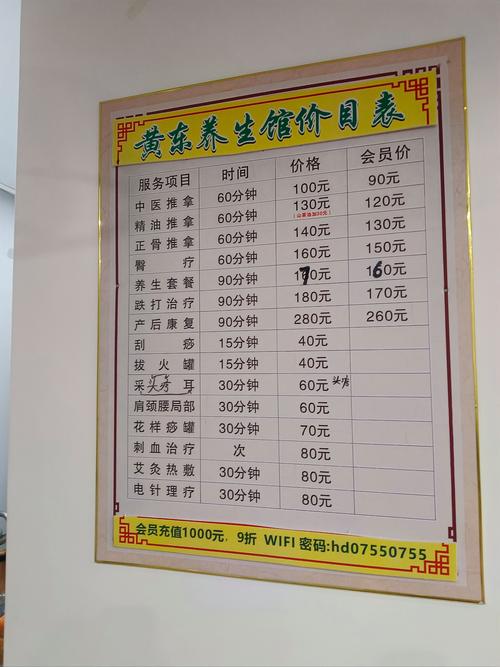 黄东养生馆价目表
服务项目 时间 价格 会员价
中医推拿 60分钟 100元 90元
精油推拿 60分钟 130元 120元
(山茶油加30元)
正骨推拿 60分钟 140元 130元
臀疗 60分钟 160元 150元
养生套餐 90分钟 170元 160元
跌打治疗 90分钟 180元 170元
产后康复 90分钟 280元 260元
刮痧 15分钟 40元
拔火罐 15分钟 40元
采头疗耳 30分钟 60元 头疗
肩颈腰局部 30分钟 60元
花样痧罐 30分钟 70元
刺血治疗 次 80元
艾灸热敷 30分钟 80元
电针理疗 30分钟 80元
会员充值1000元，9折 WIFI 密码:hd07550755